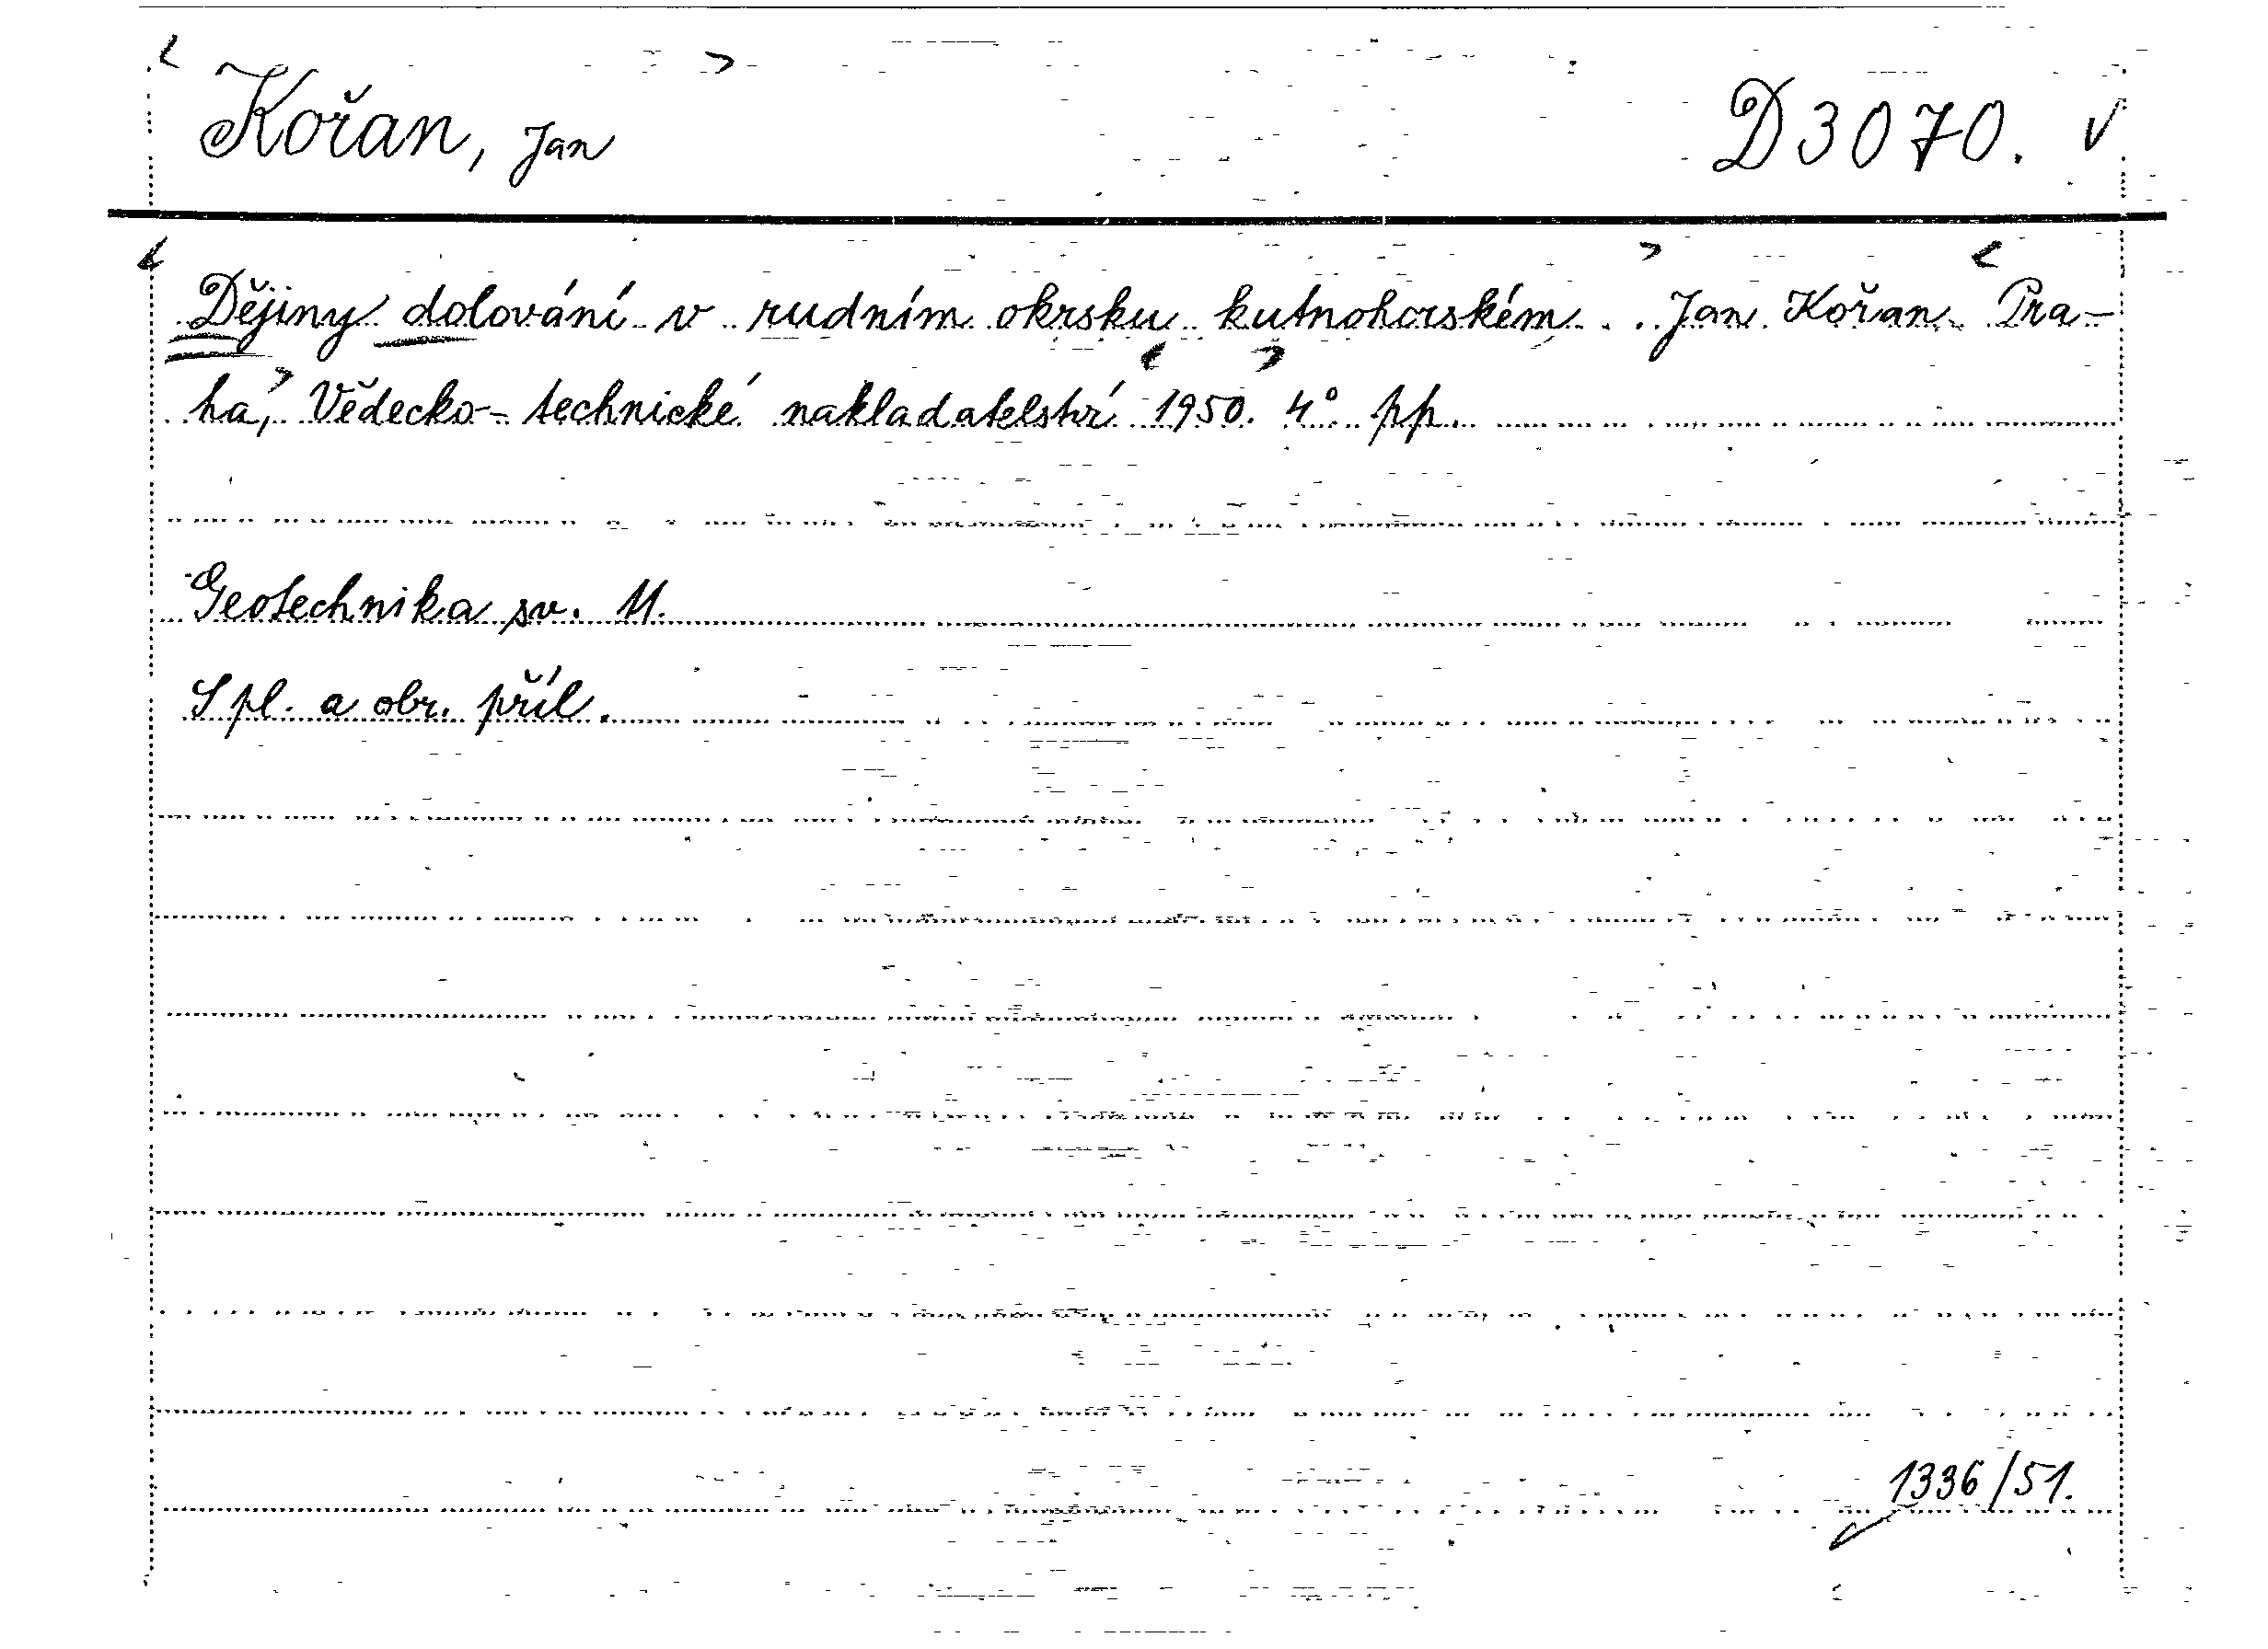 Kořan, Jan D 3070. ✓
Dějiny dolování v rudním okrsku kutnohorském. . Jan Kořan. Pra-
ha, Vědecko-technické nakladatelství 1950. 4° pp.
Geotechnika sv. 11.
S pl. a obr. příl.
1336/51.